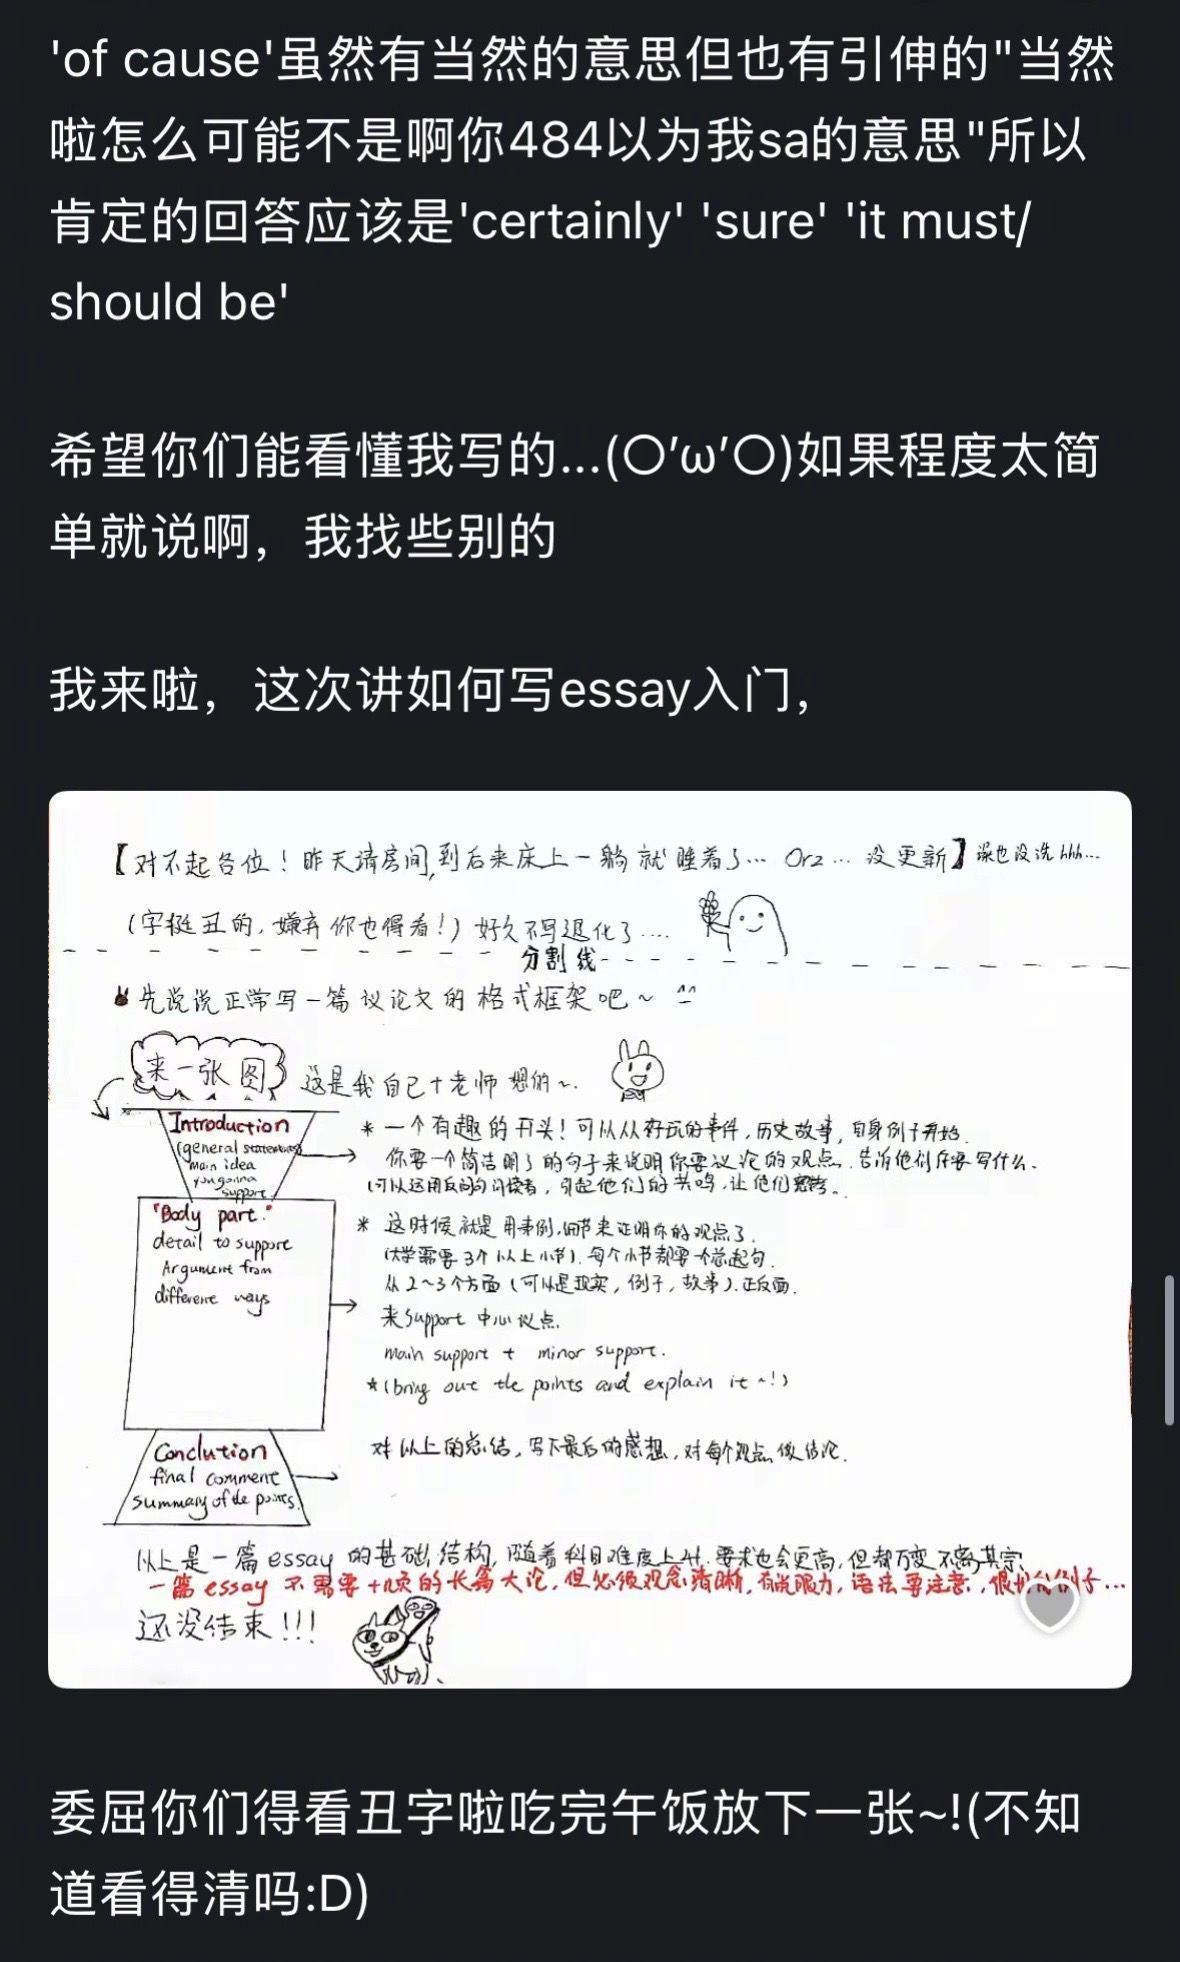 'of cause'虽然有当然的意思但也有引伸的"当然
啦怎么可能不是啊你484以为我sa的意思"所以
肯定的回答应该是'certainly' 'sure' 'it must/
should be'
希望你们能看懂我写的...(〇′ω′〇)如果程度太简
单就说啊，我找些别的
我来啦，这次讲如何写essay入门，
【对不起各位！昨天请房间,到后来床上一躺就睡着了… Orz … 没更新】澡也没洗hhh…
(字挺丑的,嫌弃你也得看！) 好久不写退化了….
分割线
先说说正常写一篇议论文的格式框架吧~
来一张图
这是我自己+老师想的~.
Introduction
(general statements)
main idea
you gonna
support
* 一个有趣的开头！可以从好玩的事件,历史故事,自身例子开始.
你要一个简洁明了的句子来说明你要议论的观点.告诉他们你要写什么.
(可以运用反问句问读者,引起他们的共鸣,让他们思考.
"Body part."
detail to support
Argument from
different ways
* 这时候就是用事例,细节来证明你的观点了.
(大学需要3个以上小节).每个小节都要个总起句.
从2~3个方面(可以是现实,例子,故事).正反面.
来support 中心议点.
main support + minor support.
*(bring out the points and explain it ~!)
Conclution
final comment
summary of the points.
对以上的总结,写下最后的感想,对每个观点做结论.
以上是一篇essay的基础结构,随着科目难度上升.要求也会更高,但都万变不离其宗.
一篇essay 不需要十几页的长篇大论,但必须观念清晰,有说服力,语法要注意,很好的例子…
还没结束!!!
委屈你们得看丑字啦吃完午饭放下一张~!(不知
道看得清吗:D)